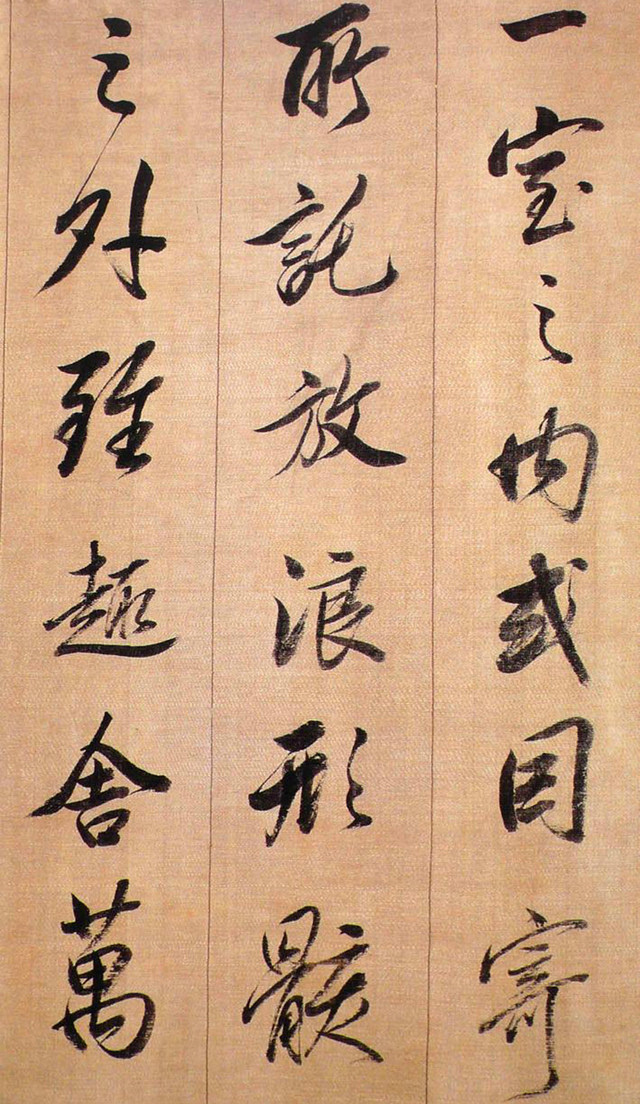 一室之内或因寄
所託放浪形骸
之外雖趣舍萬